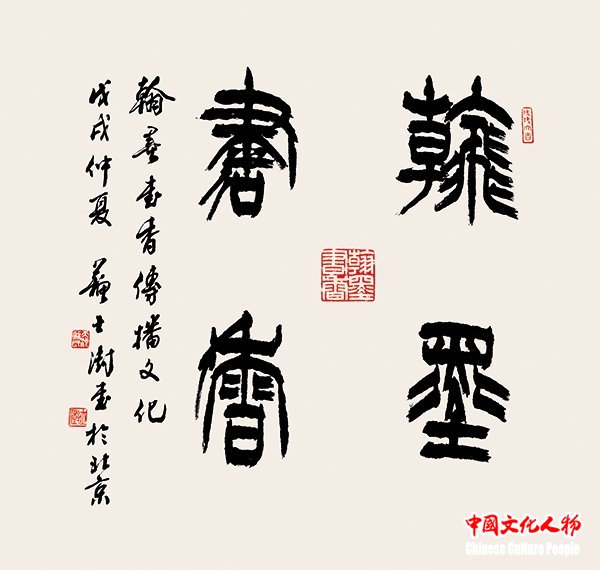 翰墨
書香
翰墨書香
翰墨書香傳播文化
戊戌仲夏 蘇士澍書於北京
中國文化人物
Chinese Culture People